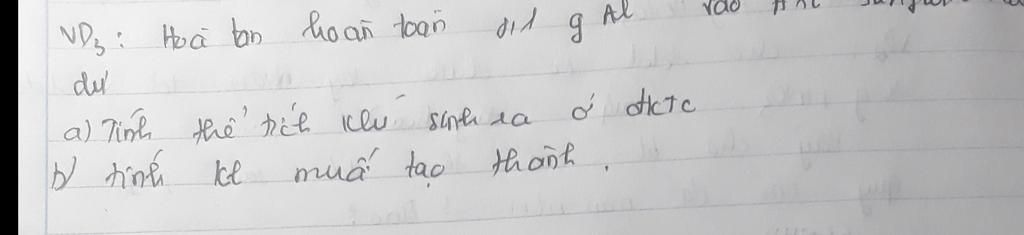 VD3: Hoà tan hoàn toàn g Al vào
dư
a) Tính thể tích khí sinh ra ở đktc
b) tính kl muối tạo thành.